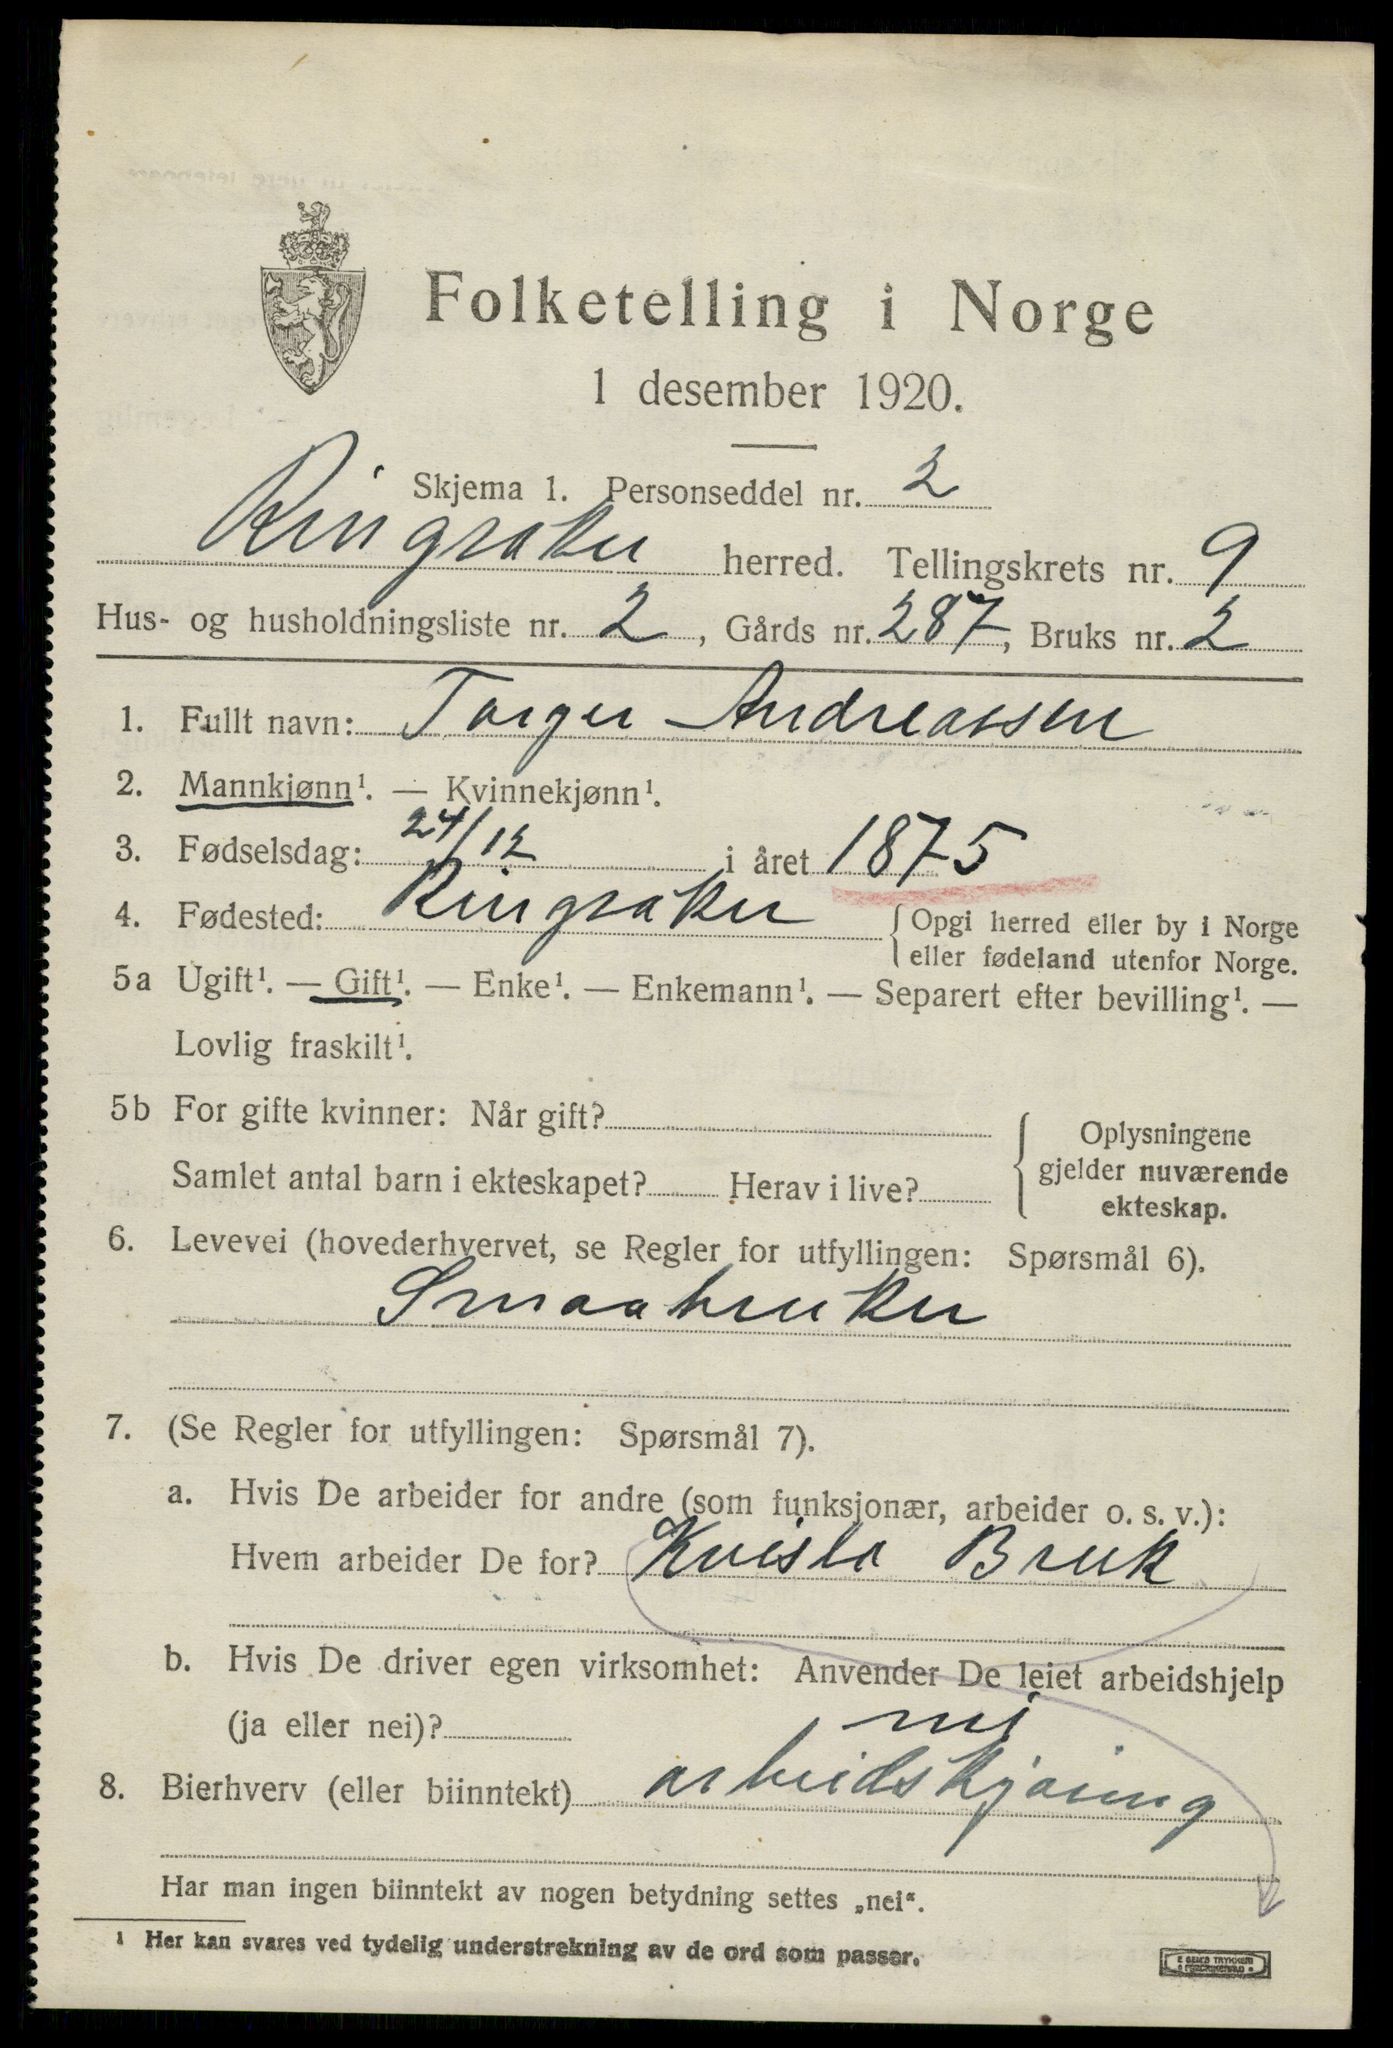 Folketelling i Norge
1 desember 1920.
Skjema 1. Personseddel nr. 2
Ringsaker herred. Tellingskrets nr. 9
Hus- og husholdningsliste nr. 2, Gårds nr. 287, Bruks nr. 2
1. Fullt navn: Torger Andreassen
2. Mannkjønn¹. — Kvinnekjønn¹.
3. Fødselsdag: 24/12 i året 1875
4. Fødested: Ringsaker { Opgi herred eller by i Norge
eller fødeland utenfor Norge.
5a Ugift¹. — Gift¹. — Enke¹. — Enkemann¹. — Separert efter bevilling¹. —
Lovlig fraskilt¹.
5b For gifte kvinner: Når gift?
Samlet antal barn i ekteskapet? Herav i live?
Oplysningene
gjelder nuværende
ekteskap.
6. Levevei (hovederhvervet, se Regler for utfyllingen: Spørsmål 6).
Smaabruker
7. (Se Regler for utfyllingen: Spørsmål 7).
a. Hvis De arbeider for andre (som funksjonær, arbeider o. s. v.):
Hvem arbeider De for? Kvisla Bruk
b. Hvis De driver egen virksomhet: Anvender De leiet arbeidshjelp
(ja eller nei)? nei
8. Bierhverv (eller biinntekt) arbeidskjøring
Har man ingen biinntekt av nogen betydning settes „nei“.
¹ Her kan svares ved tydelig understrekning av de ord som passer.